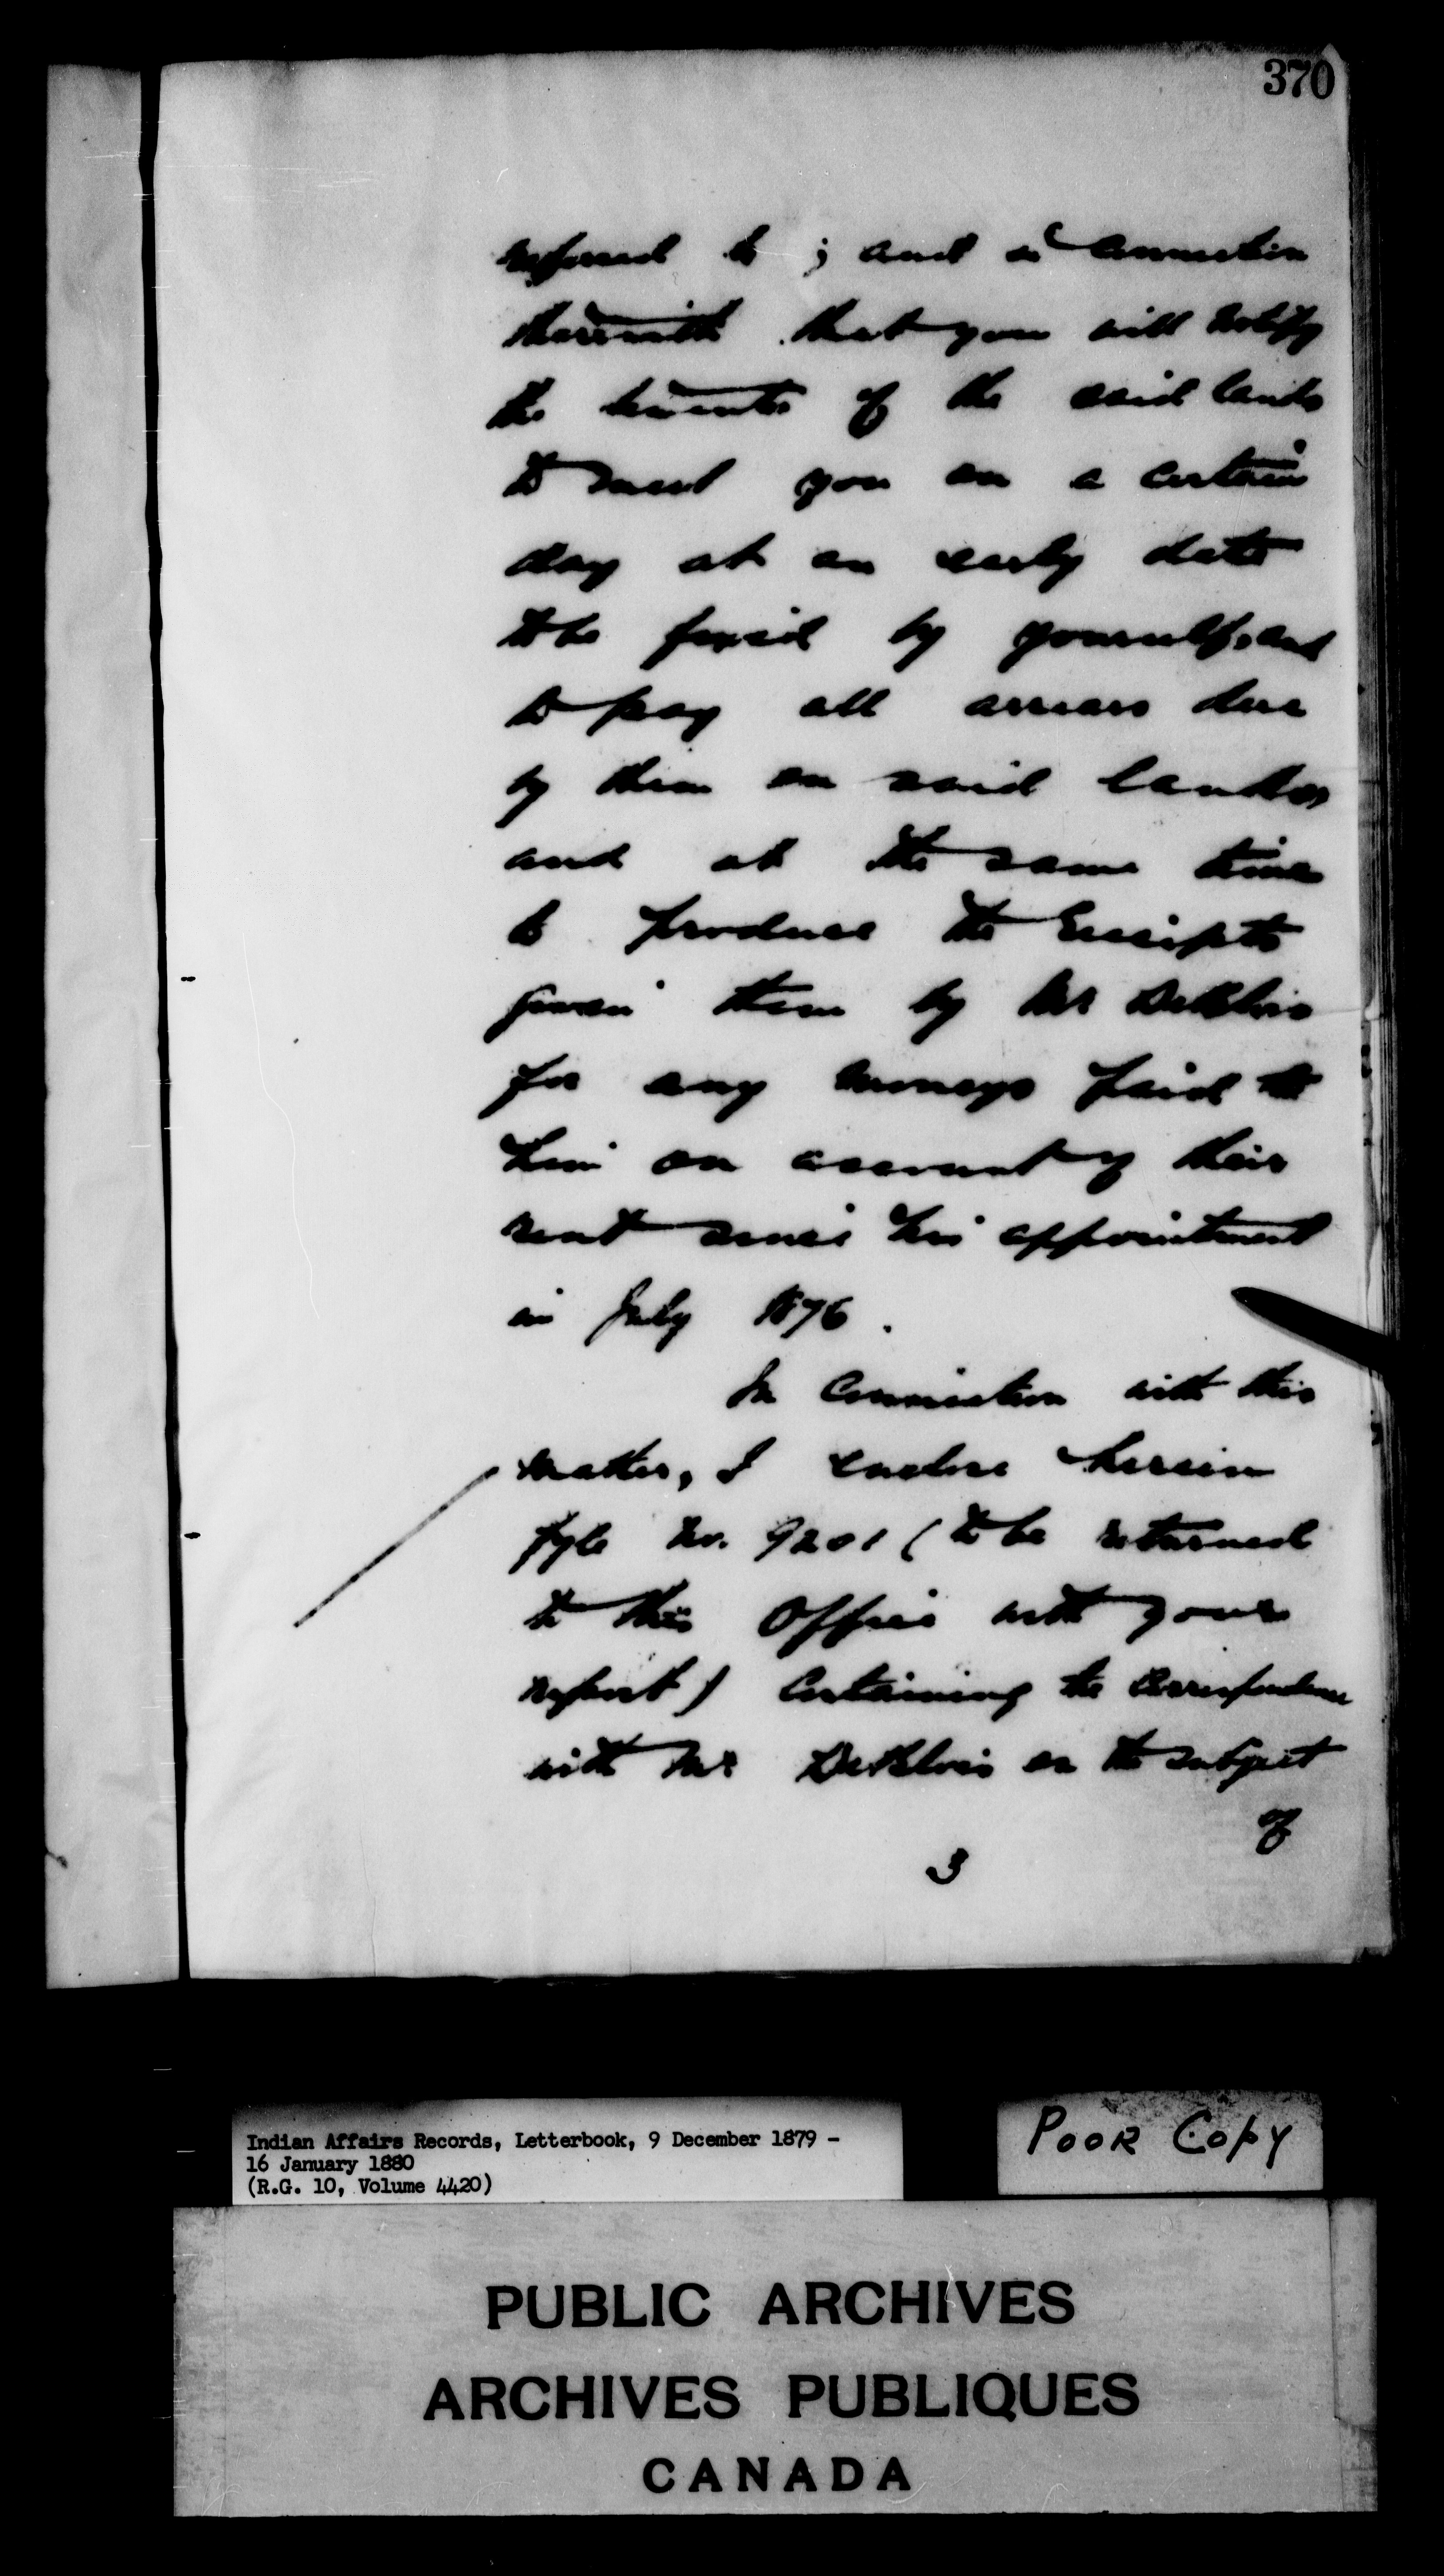 370
referred to ; and in connection
therewith that you will notify
the tenants of the said lands
to meet you on a certain
day at an early date
to be fixed by yourself, and
to pay all arrears due
by them on said lands,
and at the same time
to produce the receipts
given them by Mr DeBlois
for any moneys paid to
him on account of their
rent since his appointment
in July 1876.
In connection with this
matter, I enclose herein
fyle No. 9201 (to be returned
to this Office with your
report) containing the correspondence
with Mr DeBlois on the subject
of
3
Indian Affairs Records, Letterbook, 9 December 1879 -
16 January 1880
(R.G. 10, Volume 4420)
POOR COPY
PUBLIC ARCHIVES
ARCHIVES PUBLIQUES
CANADA